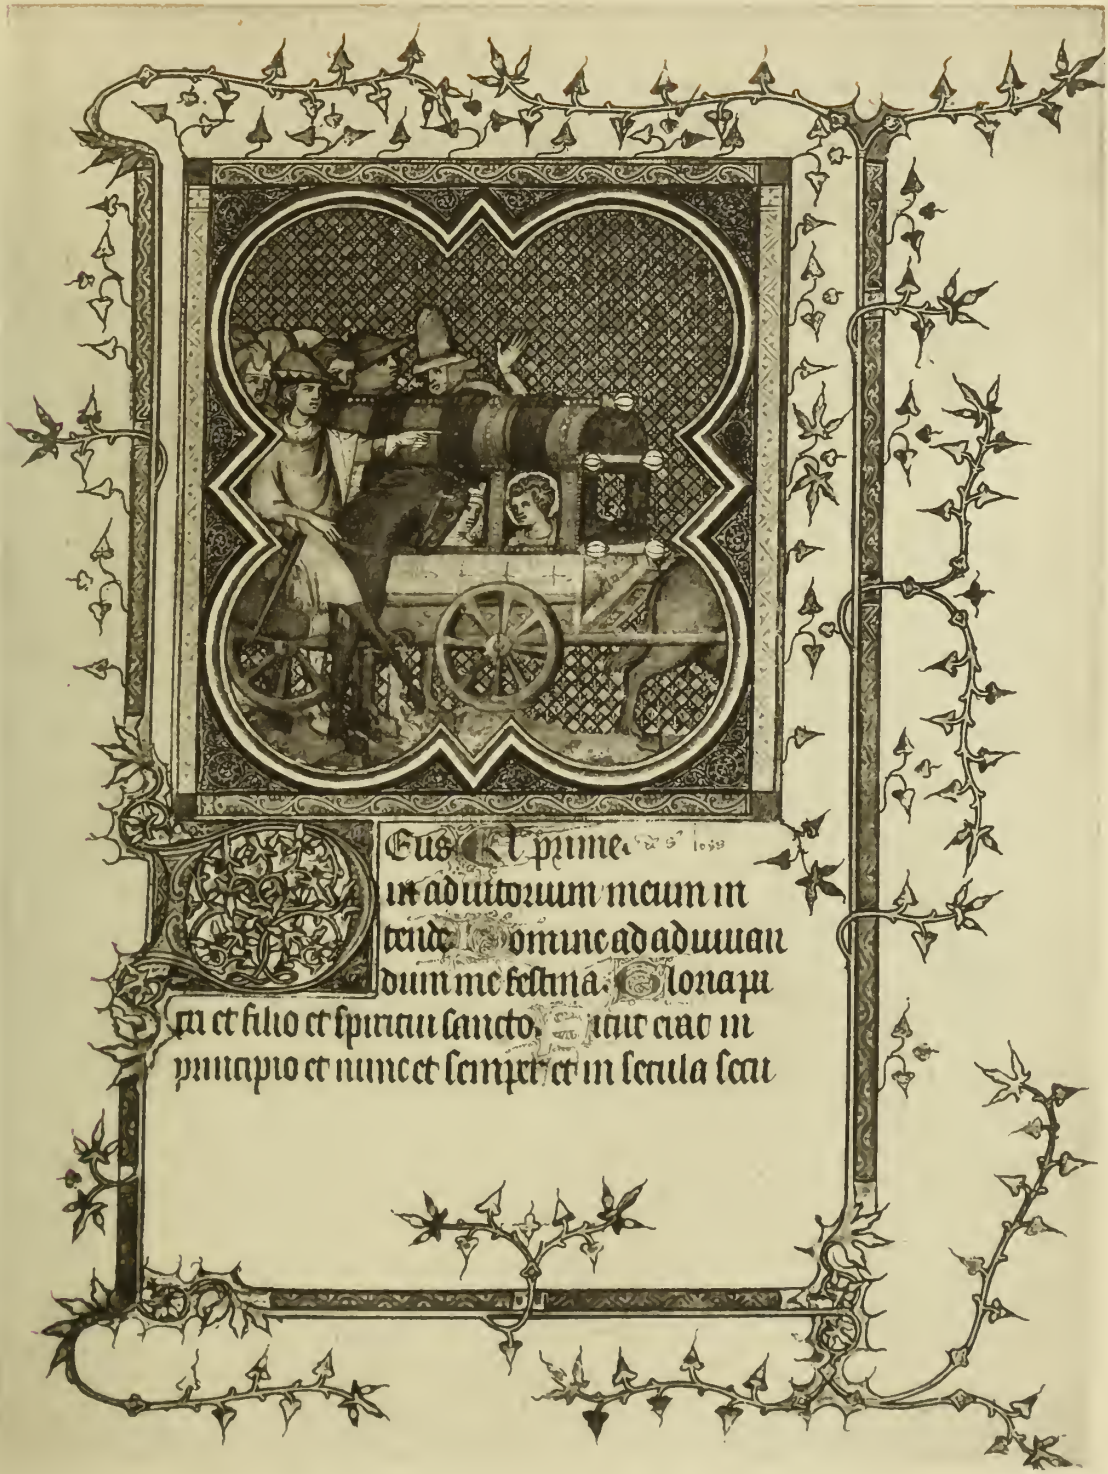 Deus A prime.
in adiutorium meum in
tende Domine ad adiuuan
dum me festina. Gloria pa
tri et filio et spiritui sancto. Sicut erat in
principio et nunc et semper et in secula secu